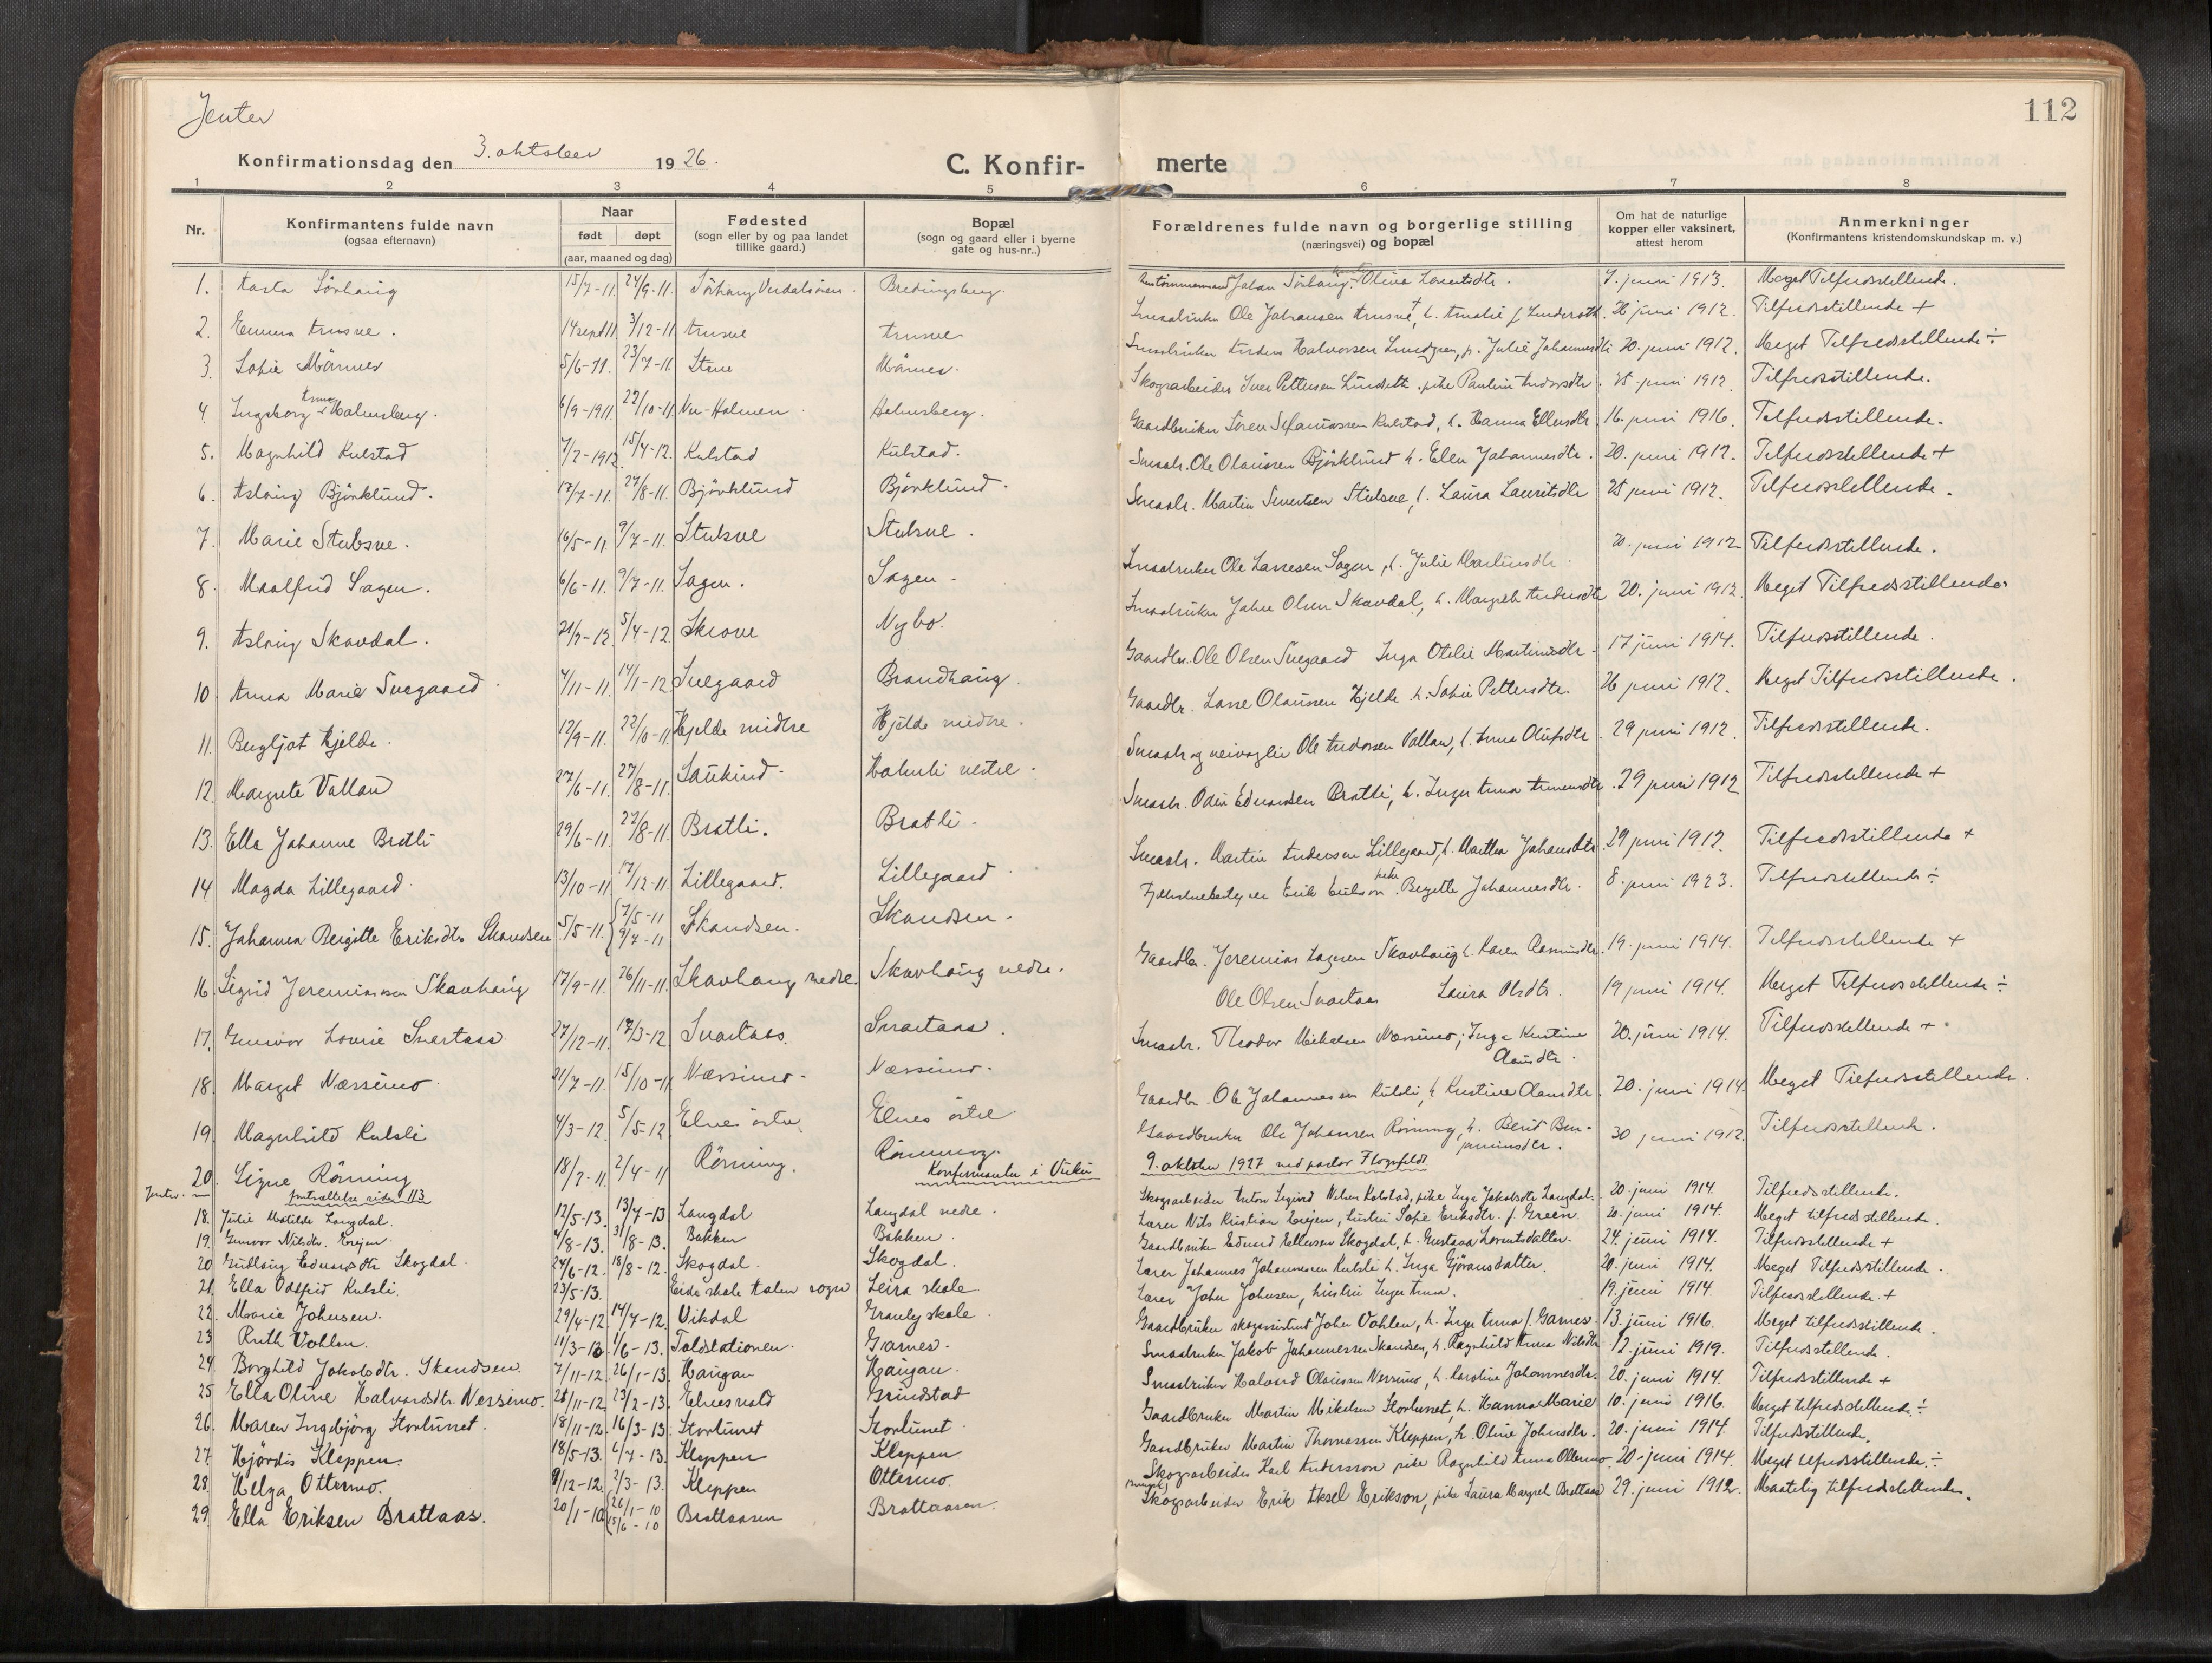 Jenter
112
Konfirmationsdag den 3. oktober 1926.
C. Konfirmerte
1 2 3 4 5 6 7 8
Nr.
Konfirmantens fulde navn (ogsaa efternavn)
Naar født døpt (aar, maaned og dag)
Fødested (sogn eller by og paa landet tillike gaard.)
Bopæl (sogn og gaard eller i byerne gate og hus-nr..)
Forældrenes fulde navn og borgerlige stilling (næringsvei) og bopæl
Om hat de naturlige kopper eller vaksinert, attest herom
Anmerkninger (Konfirmantens kristendomskundskap m. v.)
1. Aasta Sörhaug 15/7-11 24/9-11. Sörhaug Verdalsören. Johan Sörhaug. Oline Lorentsdtr. 7. juni 1913. Meget Tilfredsstillende.
2. Emma Arnsve. 14 sept 11 3/12-11 Arnsve Arnsve Smaabruker Ole Johansen Arnsve, h. Amalie f. 26 juni 1912. Tilfredsstillende +
3. Sofie Mårnes 5/6-11. 23/7-11. Stene Mårnes. Smaabruker Anders Halvorsen Lundgren, p. Julie Johannesdtr 20. juni 1912. Meget Tilfredsstillende ÷
4 Ingeborg Anna Holmsberg. 6/9-1911. 22/10-11. Holmen Holmsberg. Skogsarbeider Iver Pettersen pike Pauline Andersdtr. 25 juni 1912. Tilfredsstillende.
5. Magnhild Kulstad 7/2-1912. 15/4-12. Kulstad Kulstad. Gaardbruker Sören Kulstad, h. Hanna Ellensdtr. 16. juni 1916. Tilfredsstillende.
6. Aslaug Björklund. 17/7-11. 27/8-11. Björklund Björklund. Smaabr. Ole Olaussen Björklund h. Ellen Johannesdtr. 20. juni 1912. Tilfredsstillende +
7. Marie Stubsve. 16/5-11. 9/7-11. Stubsve Stubsve. Smaabr. Martin Sivertsen Stubsve, h. Laura Lauritsdtr 25 juni 1912. Tilfredsstillende.
8. Maalfrid Sagen. 6/6-11. 9/7-11. Sagen. Sagen. Smaabruker Ole Larsesen Sagen, h. Julie Martinsdtr. 20. juni 1912 Tilfredsstillende.
9. Aslaug Skavdal. 21/2-12 5/4-12. Skrove Nybo. Smaabruker Johan Olsen Skavdal, h. Margreth Andersdtr 20. juni 1912. Meget Tilfredsstillende.
10. Anna Marie Svegaard 4/11-11. 14/1-12 Svegaard Brandhaug. Gaardbr. Ole Olsen Svegaard Inga Otelie Martinusdtr. 17 juni 1914. Tilfredsstillende.
11. Bergljot Hjelde. 12/9-11. 22/10-11 Hjelde midtre Hjelde midtre. Gaardbr. Lasse Olaussen Hjelde h. Sofie Pettersdtr. 26 juni 1912. Meget Tilfredsstillende.
12. Margrete Vollan 27/6-11. 27/8-11. Saukind. vestre. Smaabr. og Ole Andersen Vollan, h. Anna Olufsdtr. 29 juni 1912. Tilfredsstillende.
13. Ella Johanne Bratli 29/6-11 27/8-11. Bratli. Bratli. Smaabr. Odin Edvardsen Bratli, h. Inger Anna. 29 juni 1912 Tilfredsstillende +
14 Magda Lillegaard. 13/10-11 17/12-11. Lillegaard. Lillegaard. Smaabr. Martin Andersen Lillegaard, h. Martha Johansdtr. 29 juni 1912. Tilfredsstillende +
15. Johanna Bergitte Eriksdtr Skandsen 5/5-11. 7/5-11 9/7-11 Skandsen. Skandsen. Erik pike Bergitte Johannesdtr. 8. juni 1923. Tilfredsstillende ÷
16. Sigrid Jeremiassen Skavhaug 17/9-11. 26/11-11. Skavhaug nedre. Skavhaug nedre. Gaardbr. Jeremias Skavhaug h. Karen Aasmundsdtr. 19. juni 1914. Tilfredsstillende +
17. Gunvor Lovise Svartaas 27/12-11. 17/3-12 Svartaas. Svartaas. Ole Olsen Svartaas Laura Olsdtr. 19 juni 1914. Meget Tilfredsstillende ÷
18. Margot Næssimo 21/7-11. 15/10-11 Næssimo. Næssimo. Smaabr. Theodor Mikalsen Næssimo; Inga Kristine Olausdtr. 20. juni 1914. Tilfredsstillende +
19. Magnhild Kulsli 4/3-12. 5/5-12 Elnes östre. Elnes östre Gaardbr. Ole Johannessen Kulsli, h. Kristine Olausdtr. 20. juni 1914. Meget Tilfredsstillende.
20. Signe Rönning 18/2-11. 2/4-11 Rönning. Rönning. Gaardbruker Ole Johansen Rönning, h. Berit Benjaminsdtr. 30 juni 1912. Tilfredsstillende.
Jenter. fortsættelse siden 113 Konfirmanter i Vuku 9. oktober 1927 ved pastor
18. Julie Matilde Langdal. 12/5-13. 13/7-13 Langdal Langdal nedre. Skogsarbeider Anton Sigurd Nilsen Kolstad, pike Inga Jakobsdtr Langdal. 20. juni 1914. Tilfredsstillende.
19. Gunvor Nilsdtr. Ertjen. 4/8-13. 31/8-13. Bakken Bakken. Lærer Nils Kristian, hustru Sofie Eriksdtr. f. Green. 20. juni 1914. Meget tilfredsstillende.
20 Gudlaug Edvardsdtr Skogdal. 24/6-12. 18/8-12. Skogdal. Skogdal. Gaardbruker Edvard Ellensen Skogdal, h. Gustava Lorentsdatter. 24. juni 1914. Tilfredsstillende +
21. Ella Oddfrid Kulsli. 23/5-13. Eide skole sogn Leira skole Lærer Johannes Johannessen Kulsli h. Inga Gjöransdatter. 20. juni 1914. Meget Tilfredsstillende.
22. Marie Johnsen. 29/4-12. 14/7-12. Vikdal skole. Lærer John Johnsen, hustru Inger Anna. 19. juni 1914. Tilfredsstillende. +
23 Ruth Vohlen. 11/3-13. 1/6-13. Toldstationen. Garnes. Gaardbruker skogassistent John Vohlen, h. Inger Anna f. Garnes. 13. juni 1916. Meget tilfredsstillende.
24. Borghild Jakobsdtr. Skandsen. 7/11-12. 26/1-13. Haugan Haugan. Smaabruker Jakob Johannessen Skandsen, h. Ragnhild Anna Nilsdtr 12. juni 1919. Tilfredsstillende.
25. Ella Oline Halvardsdtr. Nessimo. 28/11-12. 23/2-13. Elnesvold Grindstad Smaabruker Halvard Olaussen Nessimo, h. Karoline Johannesdtr. 20. juni 1914. Tilfredsstillende +
26. Maren Ingebjörg Storlunet. 18/11-12. 16/3-13. Storlunet Storlunet. Gaardbruker Martin Mikalsen Storlunet, h. Hanna Marie 10. juni 1916. Meget tilfredsstillende. ÷
27. Hjördis Kleppen. 18/5-13. 6/7-13. Kleppen Kleppen Gaardbruker Martin Thomassen Kleppen, h. Oline Johnsdtr. 20. juni 1914. Tilfredsstillende.
28. Helga Ottermo. 9/12-12. 2/3-13. Kleppen Ottermo. Skogsarbeider Karl Andersson pike Ragnhild Anna Ottermo. 20. juni 1914. Meget tilfredsstillende. ÷
29. Ella Eriksen Brattaas. 20/1-10. 26/1-10 15/6-10 Brattaasen Brattaasen. Skogsarbeider Erik Aksel Erikson, pike Laura Margreth Brattaas 29. juni 1912. Maatelig tilfredsstillende.